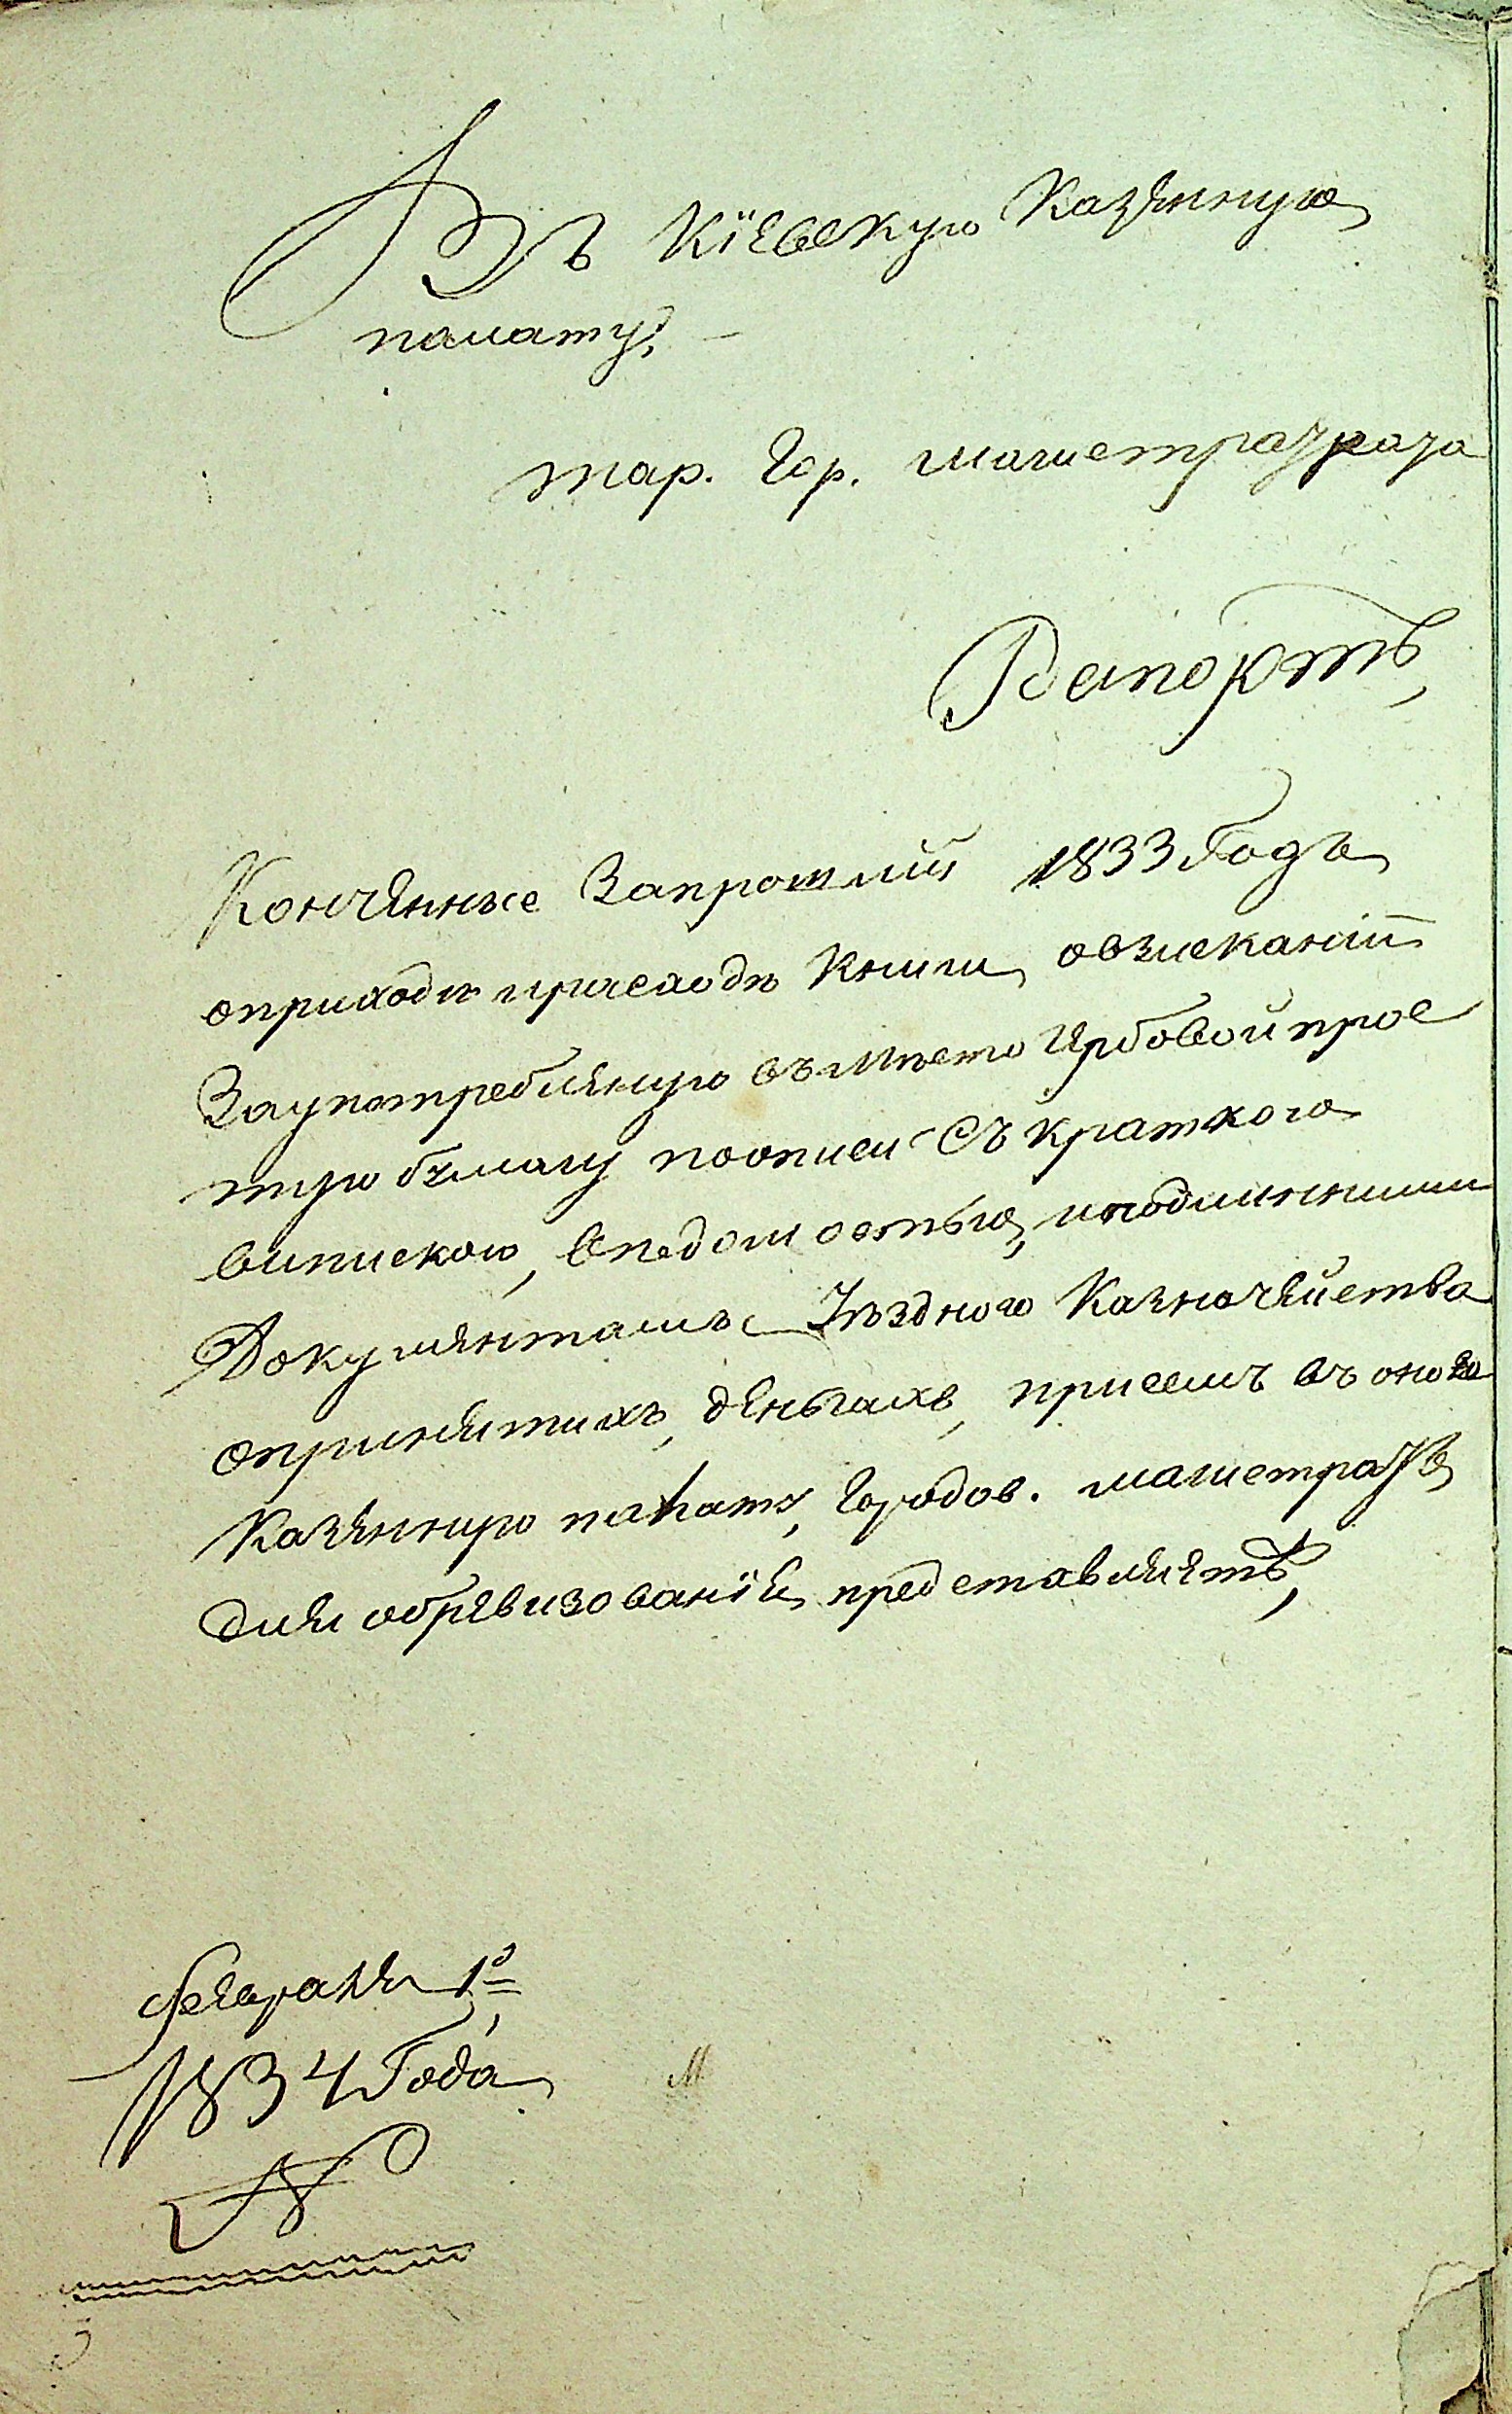 Въ Кіевскую Казенную
полату,
тар. Гор. магистра
Рапортъ,
Конченые Запрошлий 1833 Годъ
оприходи и расходѣ Книги овзисканіи
Заупотребленую въмѣсто Гербовой прос
тую бумагу поописи Съ краткою
випискою, вѣдомостью, и подлинними
Документами Уѣздного Казначейства
опринятихъ, деньгахъ, присемъ въ оную
Казенную палату, Городов. магистратъ
для обревизованія, представляетъ,
февраля 1го
1834 Года